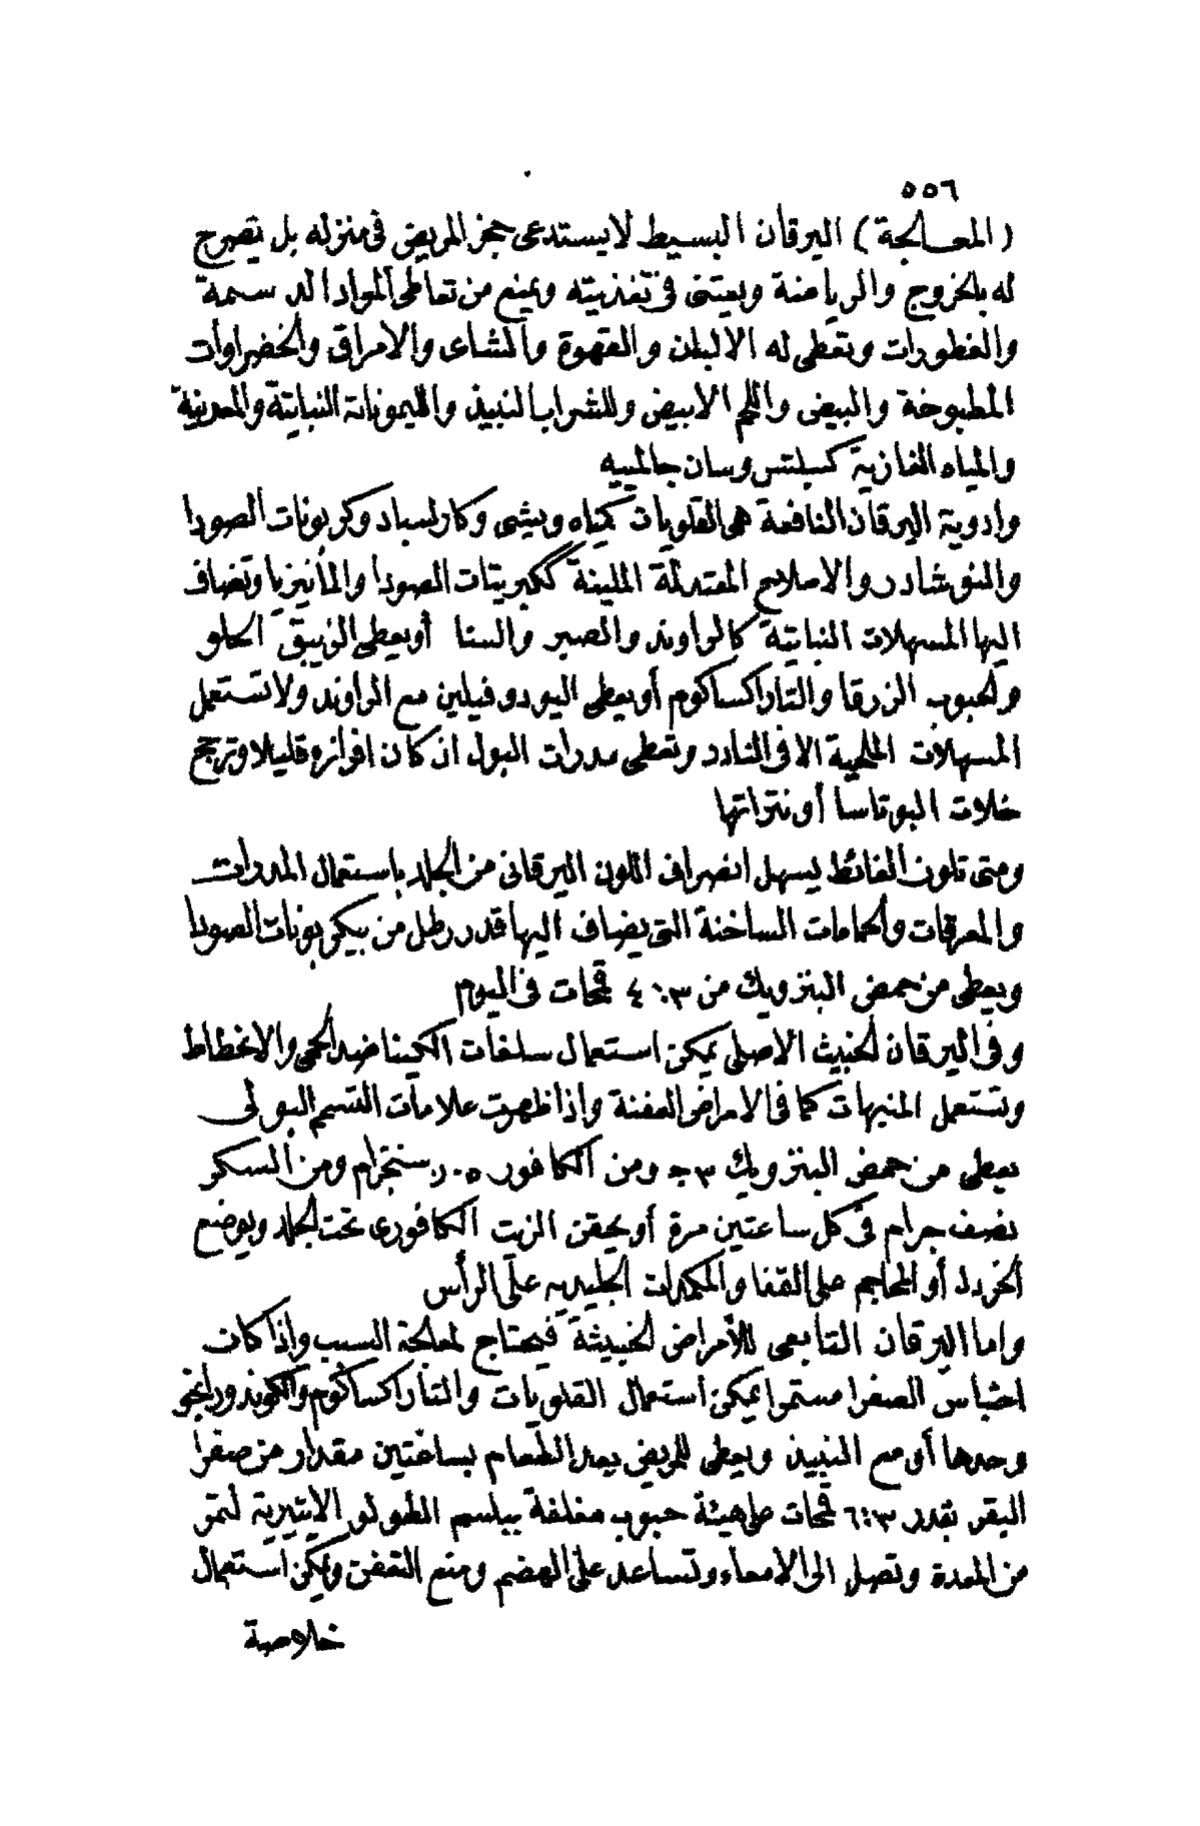 ٥٥٦
(المعالجة) اليرقان البسيط لا يستدعى حجز المريض فى منزله بل يصرح
له بالخروج والرياضة ويعتنى فى تغذيته ويمنع من تعاطى المواد الدسمة
والفطورات وتعطى له الالبان والقهوة والشاى والامراق والخضراوات
المطبوخة والبيض واللحم الابيض وللشراب النبيذ والليمونات النباتية والمعدنية
والمياه الغازية كسيلتس وسان جالمييه
وادوية اليرقان النافعة هى القلويات كمياه ويشى وكارلسباد وكربونات الصودا
والنوشادر والاملاح المعتدلة الملينة ككبريتات الصودا والمانيزيا وتضاف
اليها المسهلات النباتية كالراوند والصبر والسنا أو يعطى الزيبق الحلو
والحبوب الزرقا والتاراكساكوم أو يعطى اليودوفيلين مع الراوند ولا تستعمل
المسهلات الملحية الا فى النادر وتعطى مدرات البول ان كان افرازه قليلا وترجح
خلات البوتاسا أو نتراتها
ومتى تلون الغائط يسهل انصراف اللون اليرقانى من الجلد باستعمال المدرات
والمعرقات والحمامات الساخنة التى يضاف اليها قدر رطل من بيكربونات الصودا
ويعطى من حمض البنزويك من ٣:٤ قمحات فى اليوم
وفى اليرقان الخبيث الاصلى يمكن استعمال سلفات الكينا ضد الحمى والانحطاط
وتستعمل المنبهات كما فى الامراض العفنة واذا ظهرت علامات التسمم البولى
يعطى من حمض البنزويك ٣ج ومن الكافور ٠٥ر سنتجرام ومن السكر
نصف جرام فى كل ساعتين مرة أو يحقن الزيت الكافورى تحت الجلد ويوضع
الخردل أو المحاجم على القفا والمكمدات الجليديه على الرأس
واما اليرقان التابعى للأمراض الخبيثة فيحتاج لمعالجة السبب واذا كان
احتباس الصفرا مستمرا يمكن استعمال القلويات والتاراكساكوم والكوندورانجو
وحدها أو مع النبيذ ويعطى للمريض بعد الطعام بساعتين مقدار من صفرا
البقر بقدر ٣:٦ قمحات على هيئة حبوب مغلفة ببلسم الطولو الايتيرية لتمر
من المعدة وتصل الى الامعاء وتساعد على الهضم ومنع التعفن ويمكن استعمال
خلاصة